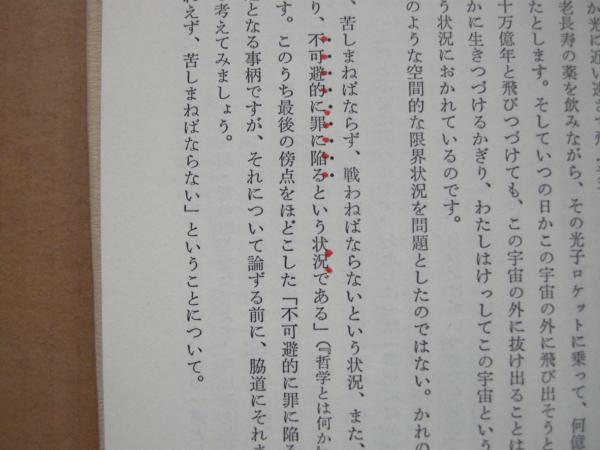 か光に近い速さで飛
老長寿の薬を飲みながら、その光子ロケットに乗って、何億
たとします。そしていつの日かこの宇宙の外に飛び出そうと
十万億年と飛びつづけても、この宇宙の外に抜け出ることは
かに生きつづけるかぎり、わたしはけっしてこの宇宙という
う状況におかれているのです。
のような空間的な限界状況を問題としたのではない。かれの
、苦しまねばならず、戦わねばならないという状況、また、
り、不可避的に罪に陥るという状況である」(『哲学とは何か』
す。このうち最後の傍点をほどこした「不可避的に罪に陥る
となる事柄ですが、それについて論ずる前に、脇道にそれま
考えてみましょう。
れえず、苦しまねばならない」ということについて。